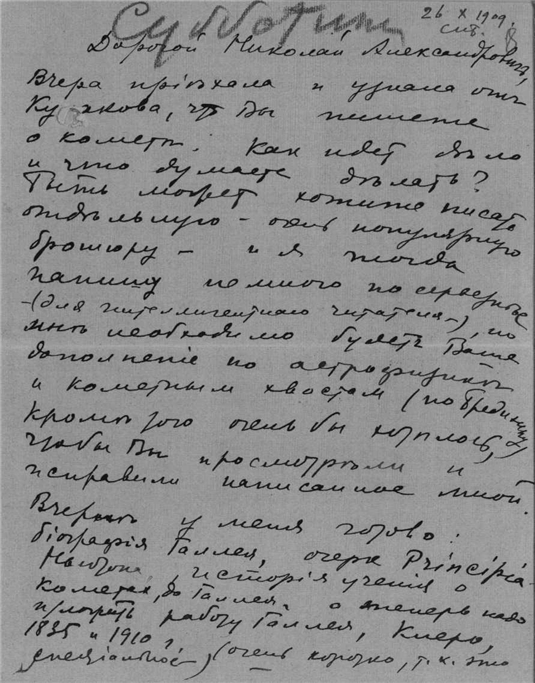 Суббота
26 X 1909.
СПб.
Дорогой Николай Александровичъ,
Вчера пріѣхала и узнала отъ
что Вы пишете
о кометѣ. Как идет дѣло
и что думаете дѣлать?
Быть может хотите писать
отдѣльную – очень популярную
брошюру – и я тогда
напишу немного посерьезнѣе
– (для интеллигентнаго читателя –), но
мнѣ необходимо будетъ Ваше
дополненіе по астрофизикѣ
и кометным хвостам (по Бредихину)
Кромѣ того очень бы хотѣлось,
чтобы Вы просмотрѣли и
исправили написанное мной.
у меня готово:
біографія Галлея, очерк Principia
Ньютона, исторія ученія о
кометах до Галлея. а теперь надо
изложить работу Галлея, Клеро,
1835 и 1910 г
(очень коротко, т. к. это
спеціальное)